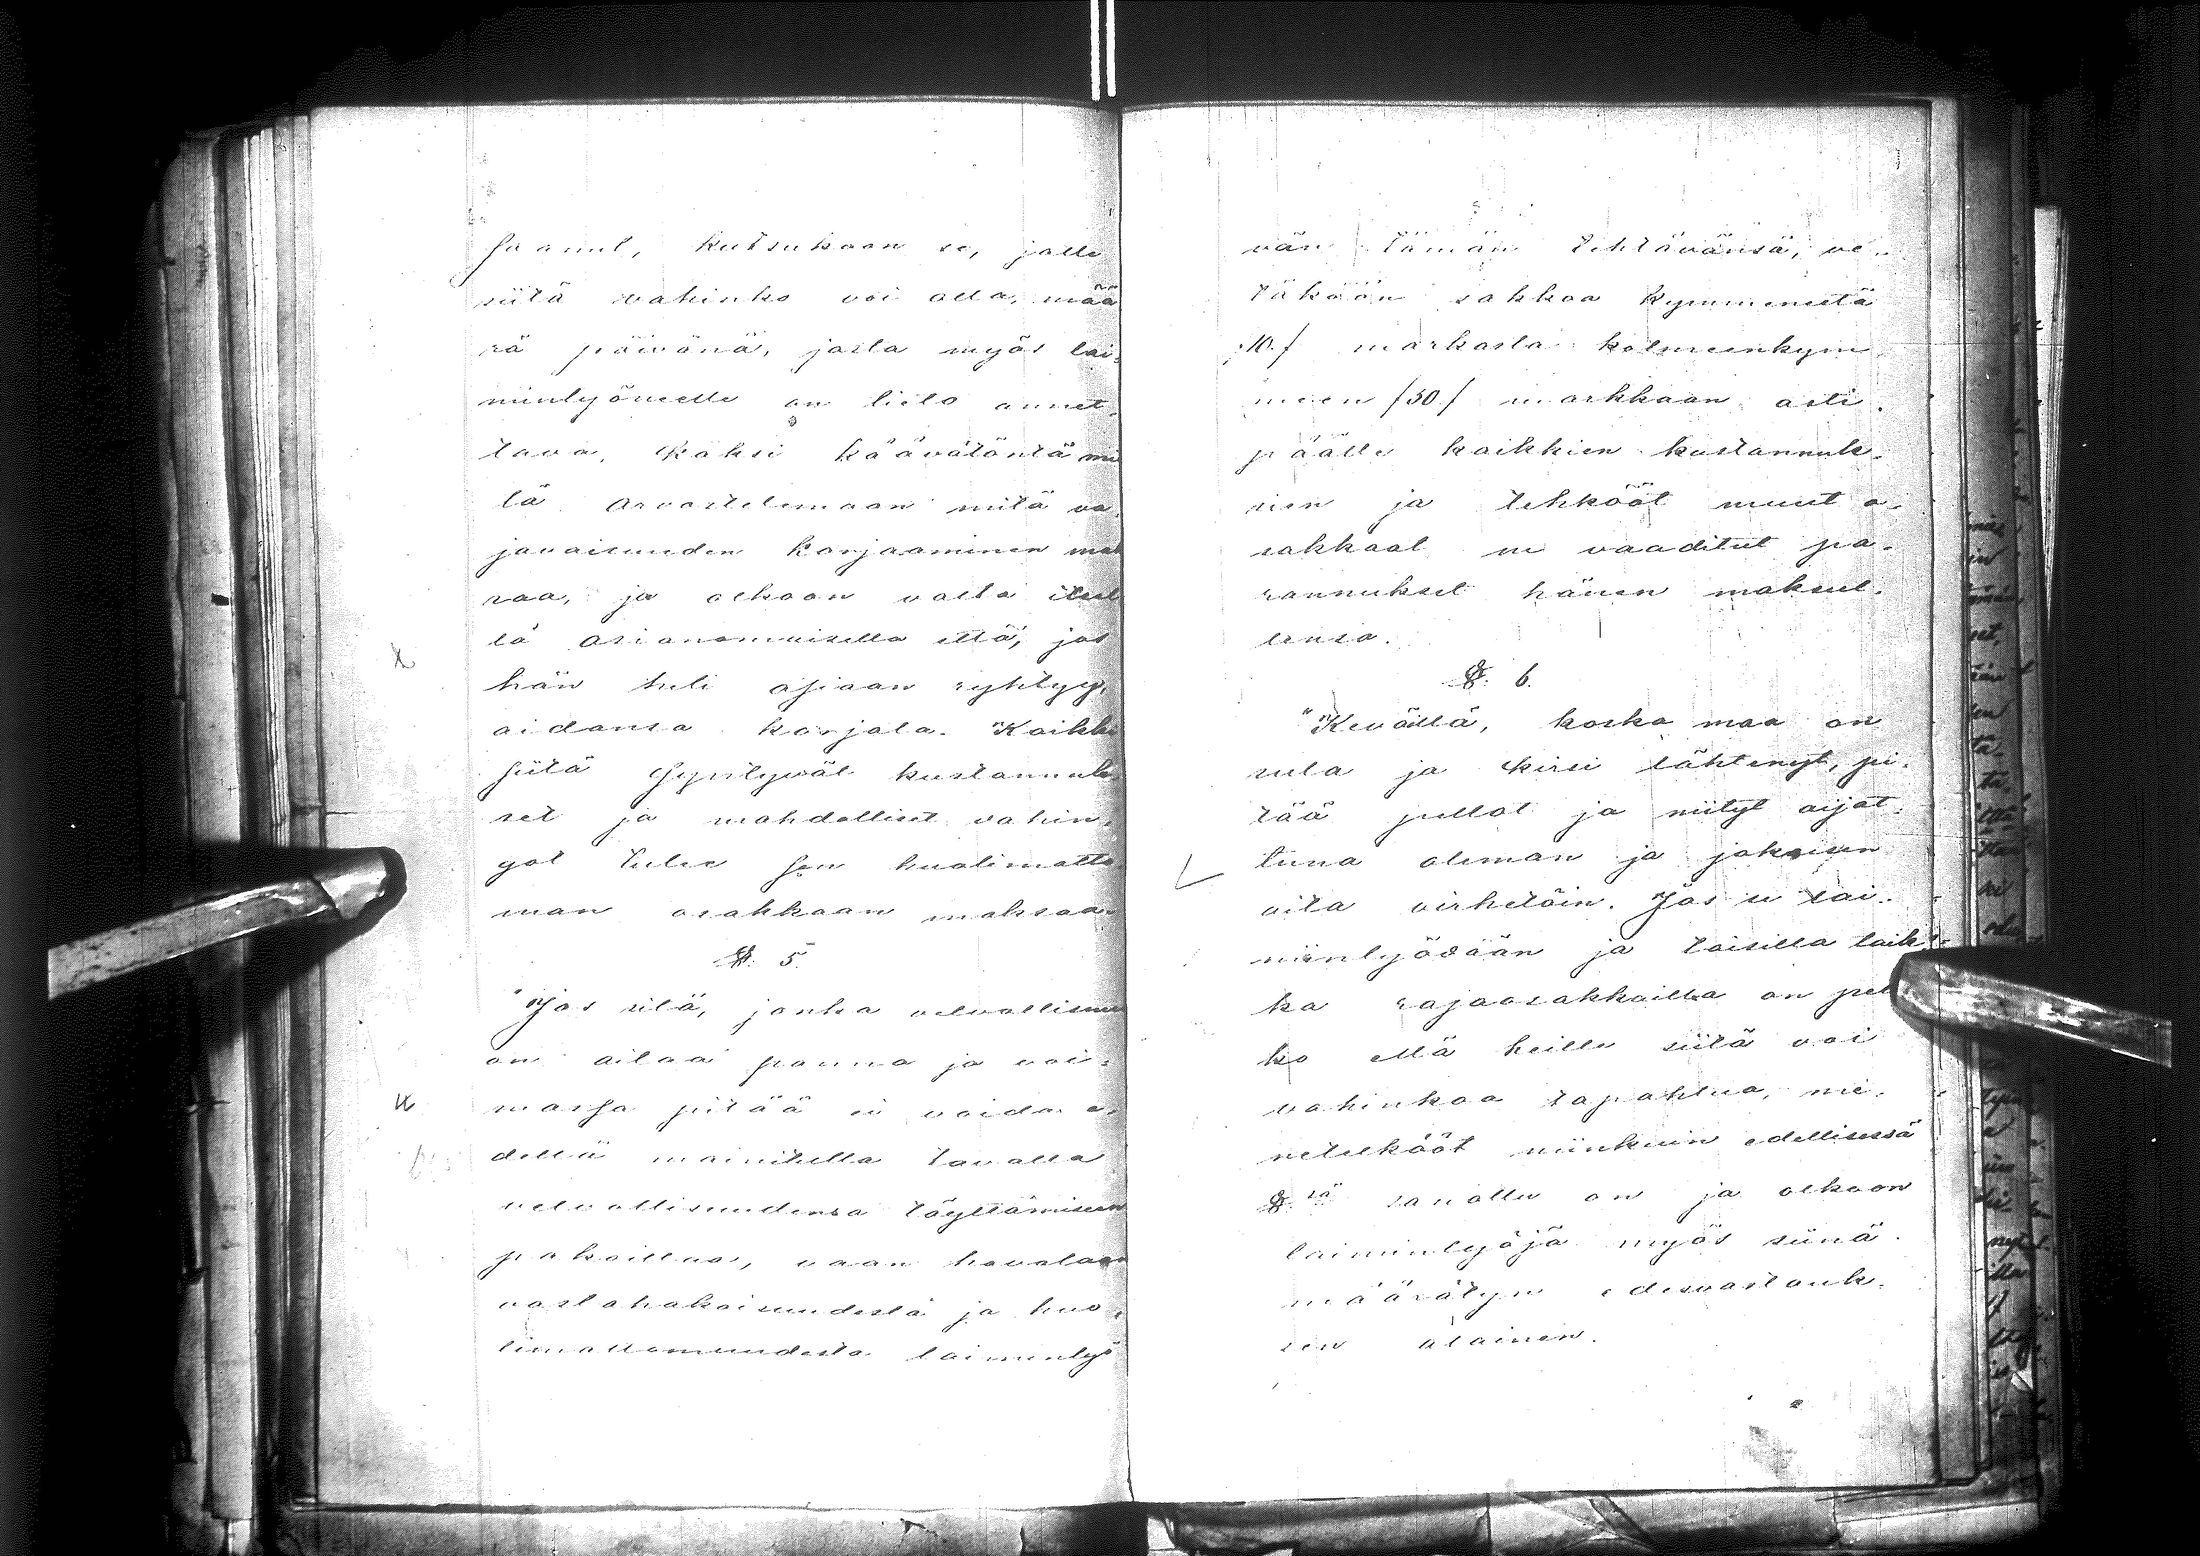 saanut, kutsukoon se, jolle
siitä vahinko voi olla, mää
rä päivänä, josta myös lai-
minlyöneelle on tieto annet-
tava, kaksi käävätöntä mi
tä arvostelemaan mitä va-
javaisuuden korjaaminen mak
saa, ja olkoon valta itsel
lä asianomaisella että, jos
hän tuli asiaan ryhtyy,
aidansa korjata. Kaikki
siitä syntyvät kustannuk
set ja mahdolliset vahin-
got tulee sen huolimatto
man osakkaan maksaa.
§. 5.
"Jos sitä, jonka velvollisuus
on aitaa panna ja voi-
massa pitää ei voida e-
dellä mainitulla tavalla
velvollisuudensa täyttämiseen
pakoittaa, vaan havataan
vastahakoisuudesta ja huo-
limattomuudesta laiminlyö
vän tämän tehtävänsä, ve-
täköön sakkoa kymmenestä
/10./ markasta kolmeenkym
meen /30/ markkaan asti
päälle kaikkien kustannuk-
sien ja tehkööt muut o-
sakkaat ne vaaditut pa-
rannukset hänen maksul-
lensa.
§. 6.
"Keväillä, koska maa on
sula ja kirsi lähtenyt, pi-
tää pellot ja niityt aijat-
tuna oleman ja jokaisen
aita virhetöin. Jos se lai-
minlyödään ja toisilla laik-
ka rajaosakkailla on pel
ko että heille siitä voi
vahinkoa tapahtua, me-
netelkööt niinkuin edellisessä
§ sä sanottu on ja olkoon
laiminlyöjä myös siinä
määrätyn edesvastauk-
sen alainen.